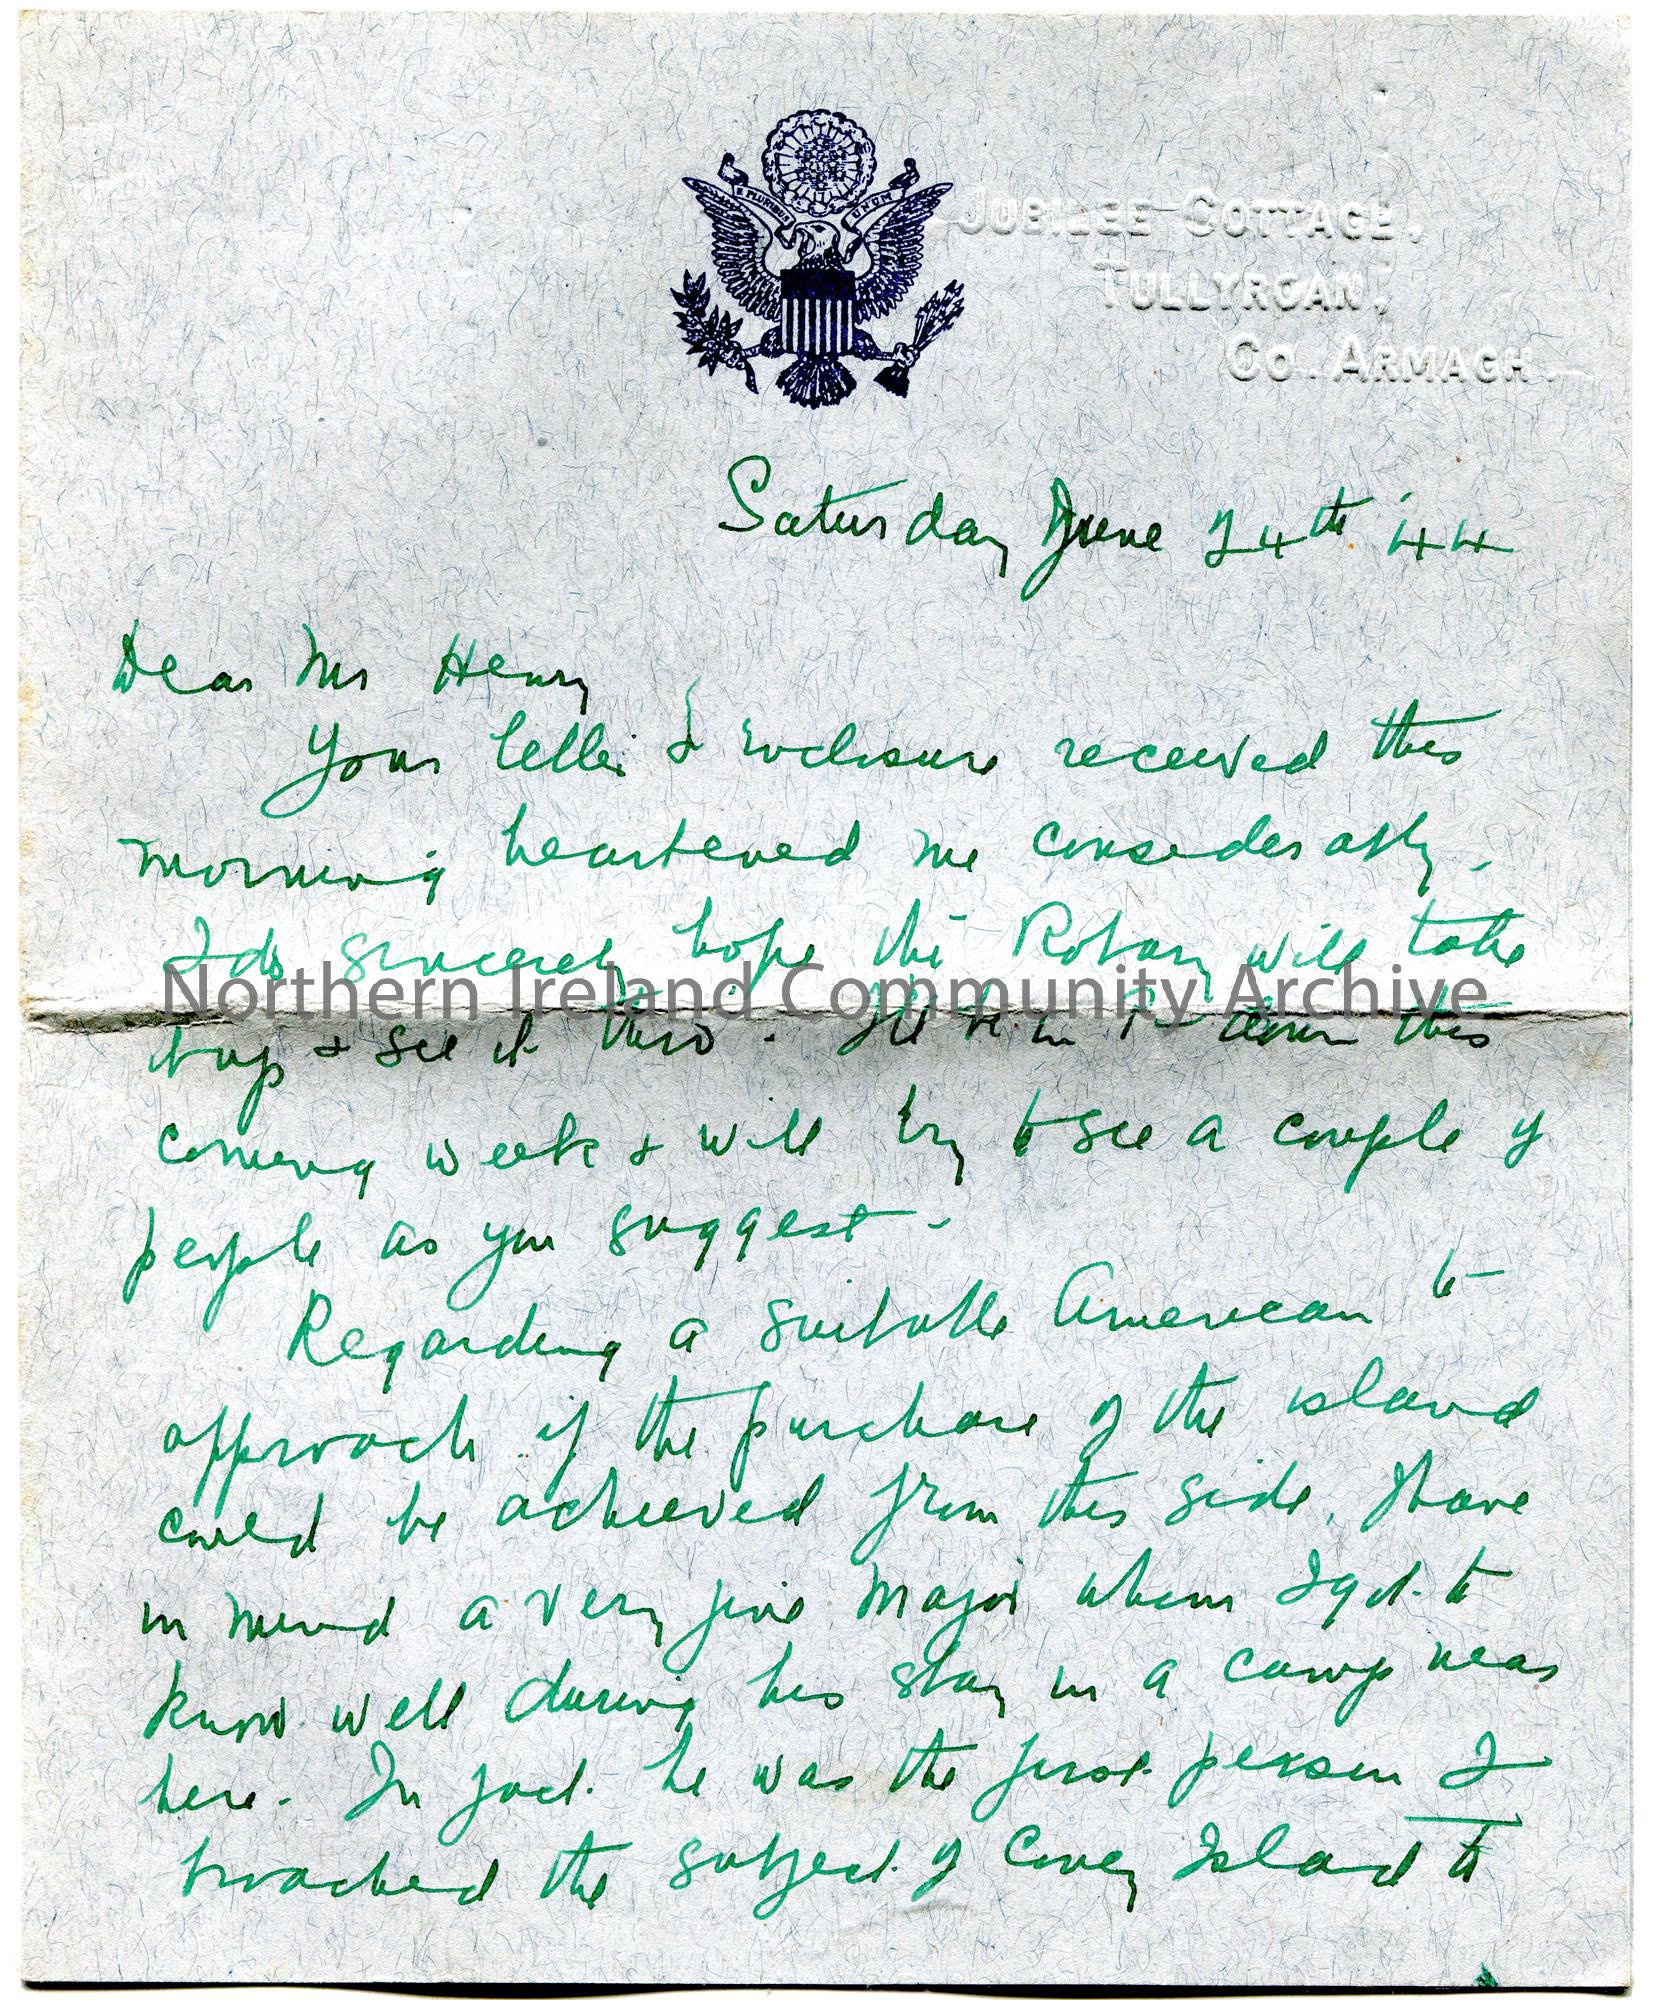 E PLURIBUS UNUM
JUBILEE COTTAGE,
TULLYROAN,
CO. ARMAGH.
Saturday June 24th '44
Dear Mr Henry
Your letter & enclosure received this
morning heartened me considerably.
I do sincerely hope the Rotary will take
it up & see it thro. I'll be in down this
coming week & will try to see a couple of
people as you suggest -
Regarding a suitable American to
approach if the purchase of the island
could be achieved from this side, I have
in mind a very fine Major whom I got to
know well during his stay in a camp near
here. In fact he was the first person I
broached the subject of Coney Island to
Northern Ireland Community Archive